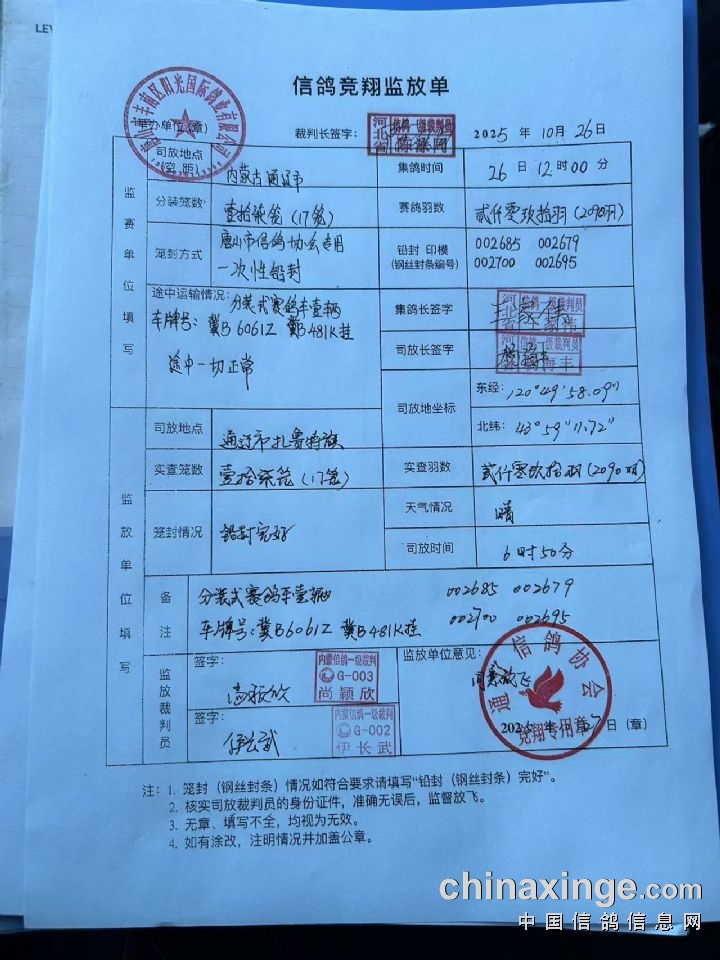 LE
信鸽竞翔监放单
唐山市丰南区阳光国际鸽业有限公司
举办单位(章)
裁判长签字:
河北省
信鸽一级裁判员
2025年 10月 26日
监赛单位填写
司放地点
(空 距)
内蒙古通辽市
集鸽时间
26日 12时00分
分装笼数
壹拾柒笼(17笼)
赛鸽羽数
贰仟零玖拾羽(2090羽)
笼封方式
唐山市信鸽协会专用
一次性铅封
铅封 印模
(钢丝封条编号)
002685 002679
002700 002695
途中运输情况:分装式赛鸽车壹辆
车牌号:冀B6061Z 冀B481K挂
途中一切正常
集鸽长签字
信鸽一级裁判员
司放长签字
信鸽一级裁判员
司放地坐标
东经:120°49′58.09″
北纬:43°59′11.72″
监放单位填写
司放地点
通辽市扎鲁特旗
实查笼数
壹拾柒笼(17笼)
实查羽数
贰仟零玖拾羽(2090羽)
笼封情况
铅封完好
天气情况
晴
司放时间
6时50分
备注
分装式赛鸽车壹辆
002685 002679
车牌号:冀B6061Z 冀B481K挂
002700 002695
监放裁判员
签字:
尚颖欣
内蒙信鸽一级裁判
G-003
尚颖欣
签字:
伊长武
内蒙信鸽一级裁判
G-002
伊长武
监放单位意见:
同意放飞
信鸽协会
竞翔专用章
日(章)
注:1. 笼封(钢丝封条)情况如符合要求请填写“铅封(钢丝封条)完好”。
2. 核实司放裁判员的身份证件,准确无误后,监督放飞。
3. 无章、填写不全,均视为无效。
4. 如有涂改,注明情况并加盖公章。
chinaxinge.com
中国信鸽信息网